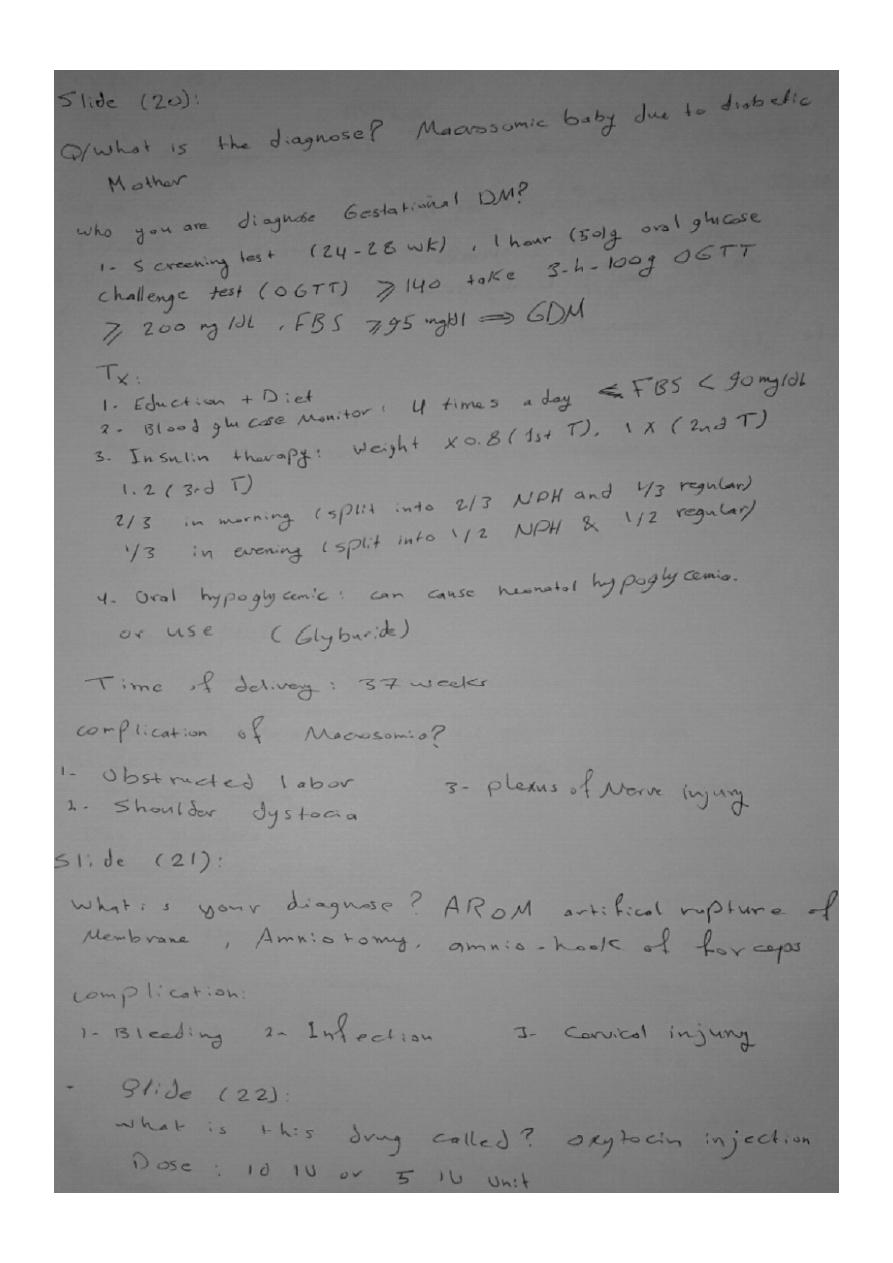 Slide (20):
Q/What is the diagnose? Macrosomic baby due to diabetic
Mother
who you are diagnose Gestational DM?
1- Screening test (24-28 wk), 1 hour (50)g oral glucose
challenge test (OGTT) ⩾140 take 3-h-100g OGTT
⩾ 200 mg/dL, FBS ⩾95 mg/dl ⇒ GDM
Tx:
1. Eduction + Diet
2- Blood glucose Monitor: 4 times a day ⩽ FBS < 90mg/dL
3. Insulin therapy: weight x0.8(1st T), 1 X (2nd T)
1.2 (3rd T)
2/3 in morning (split into 2/3 NPH and 1/3 regular)
1/3 in evening (split into 1/2 NPH & 1/2 regular)
4. Oral hypoglycemic: can cause neonatal hypoglycemia.
or use (Glyburide)
Time of delivery: 37 weeks
complication of Macrosomia?
1- Obstructed labor 3- plexus of Nerve injury
2. Shoulder dystocia
Slide (21):
What is your diagnose? AROM artifical rupture of
Membrane, Amniotomy, amnio-hook of forceps
complication:
1- Bleeding 2- Infection 3- Cervical injury
- Slide (22):
what is this drug called? oxytocin injection
Dose: 10 IU or 5 IU unit